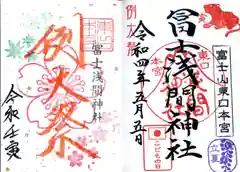 例大祭
冨士浅間神社
令和壬寅
例大祭
令和四年五月五日
冨士浅間神社
東口
本宮
冨士山東口本宮
こどもの日
立夏